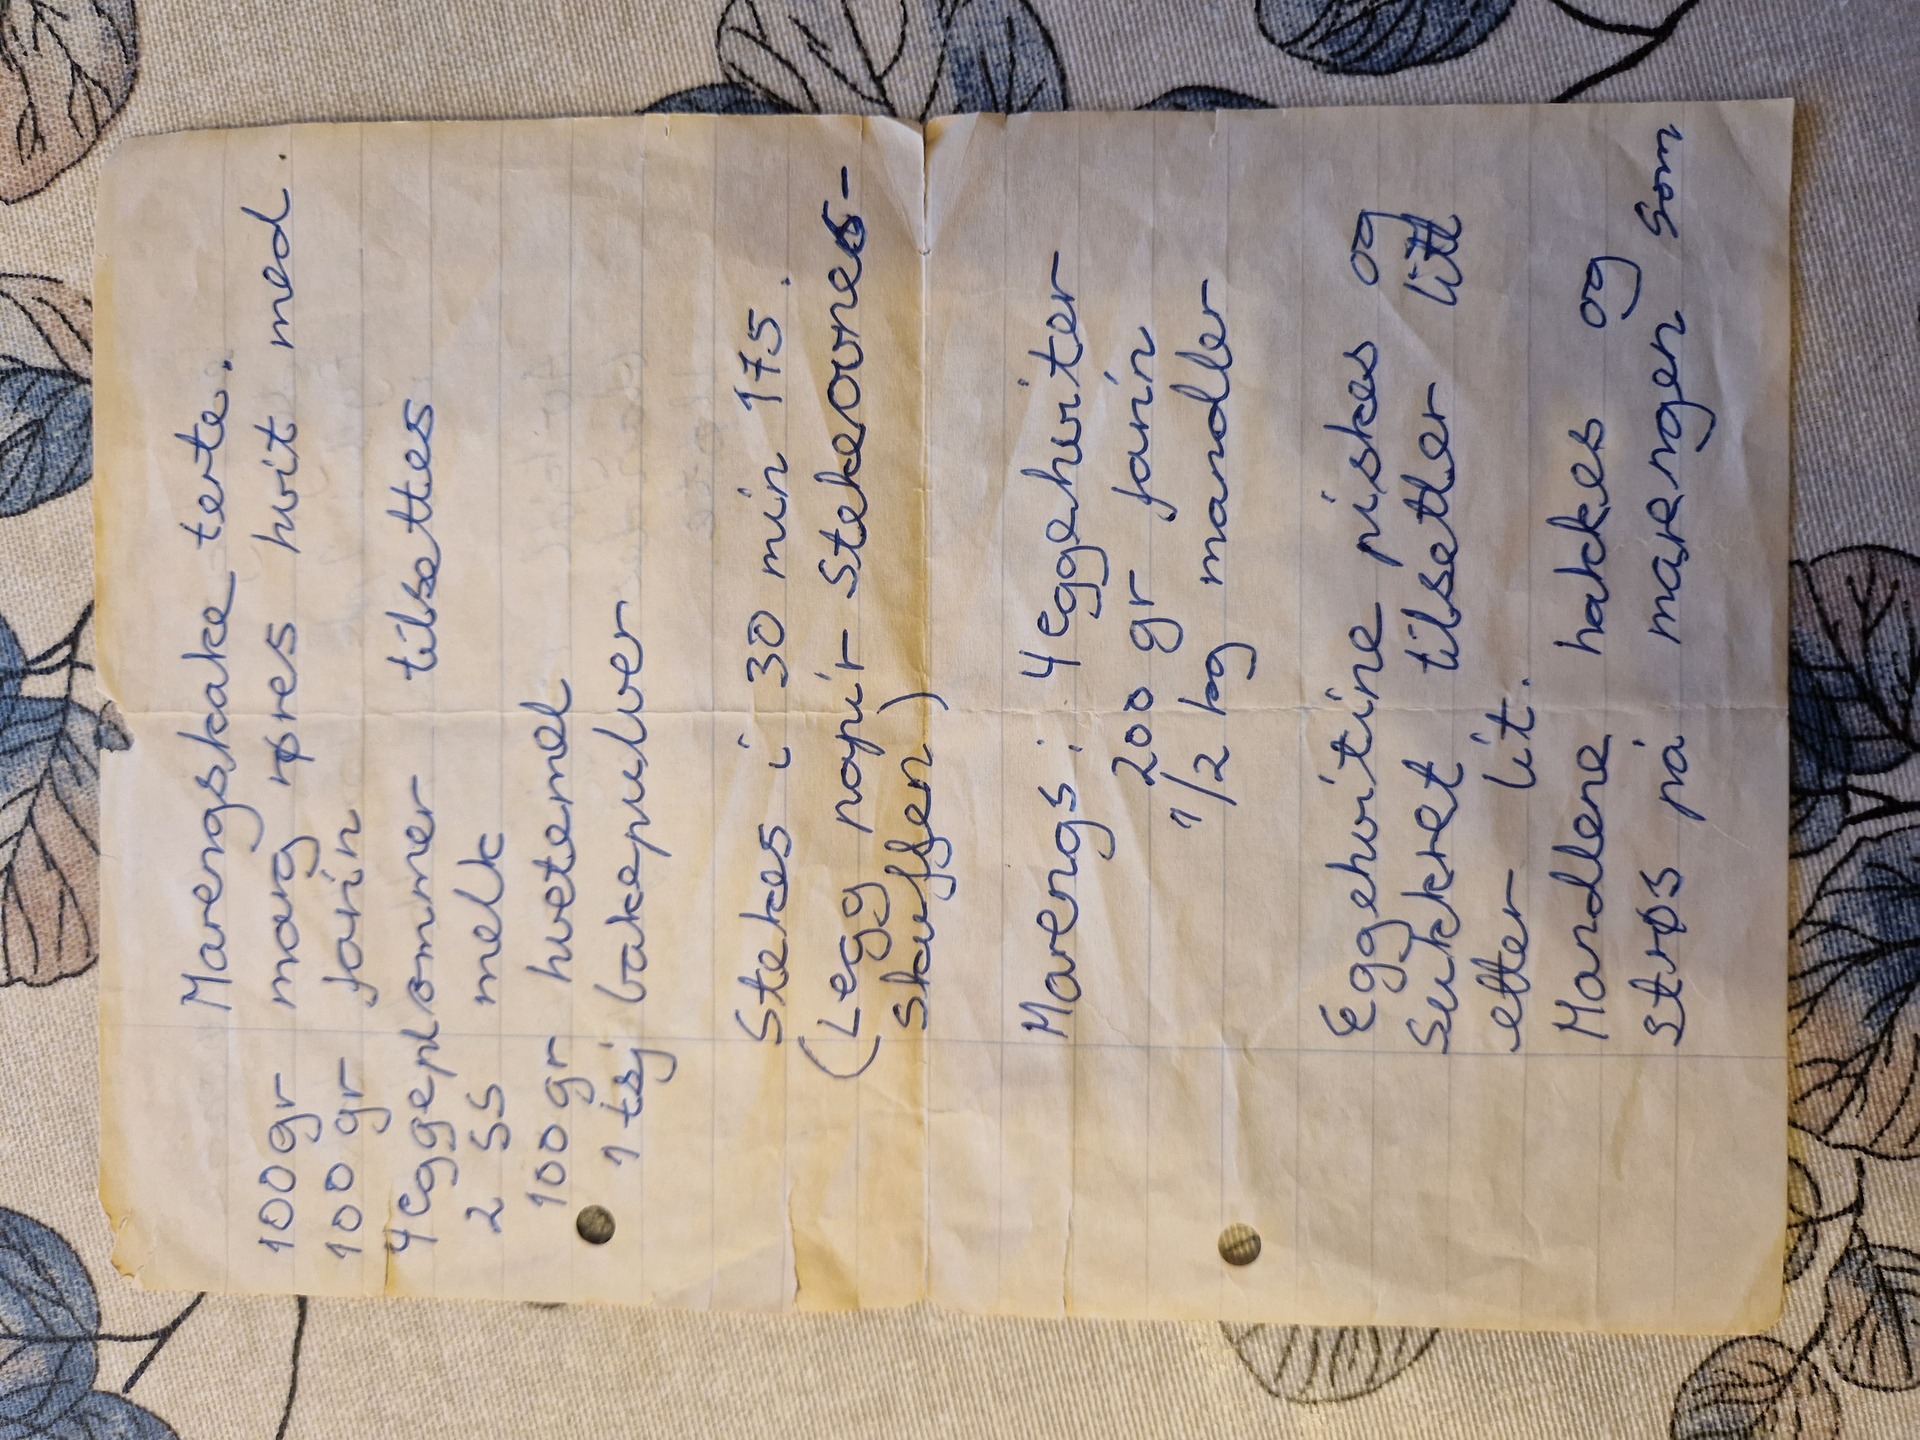 Marengskake terte.
100gr marg røres hvit med.
100 gr farin
4eggeplommer tilsettes
2 ss melk
100gr hvetemel
1 tsj bakepulver
Stekes i 30 min 175.
(Legg papir Stekeovnes-
skuffen)
Marengs: 4eggehviter
200 gr farin
1/2 kg mandler
Eggehvitine piskes og
Sukkret tilsetter litt
etter lit.
Mandlene hakkes og
strøs på marengen som